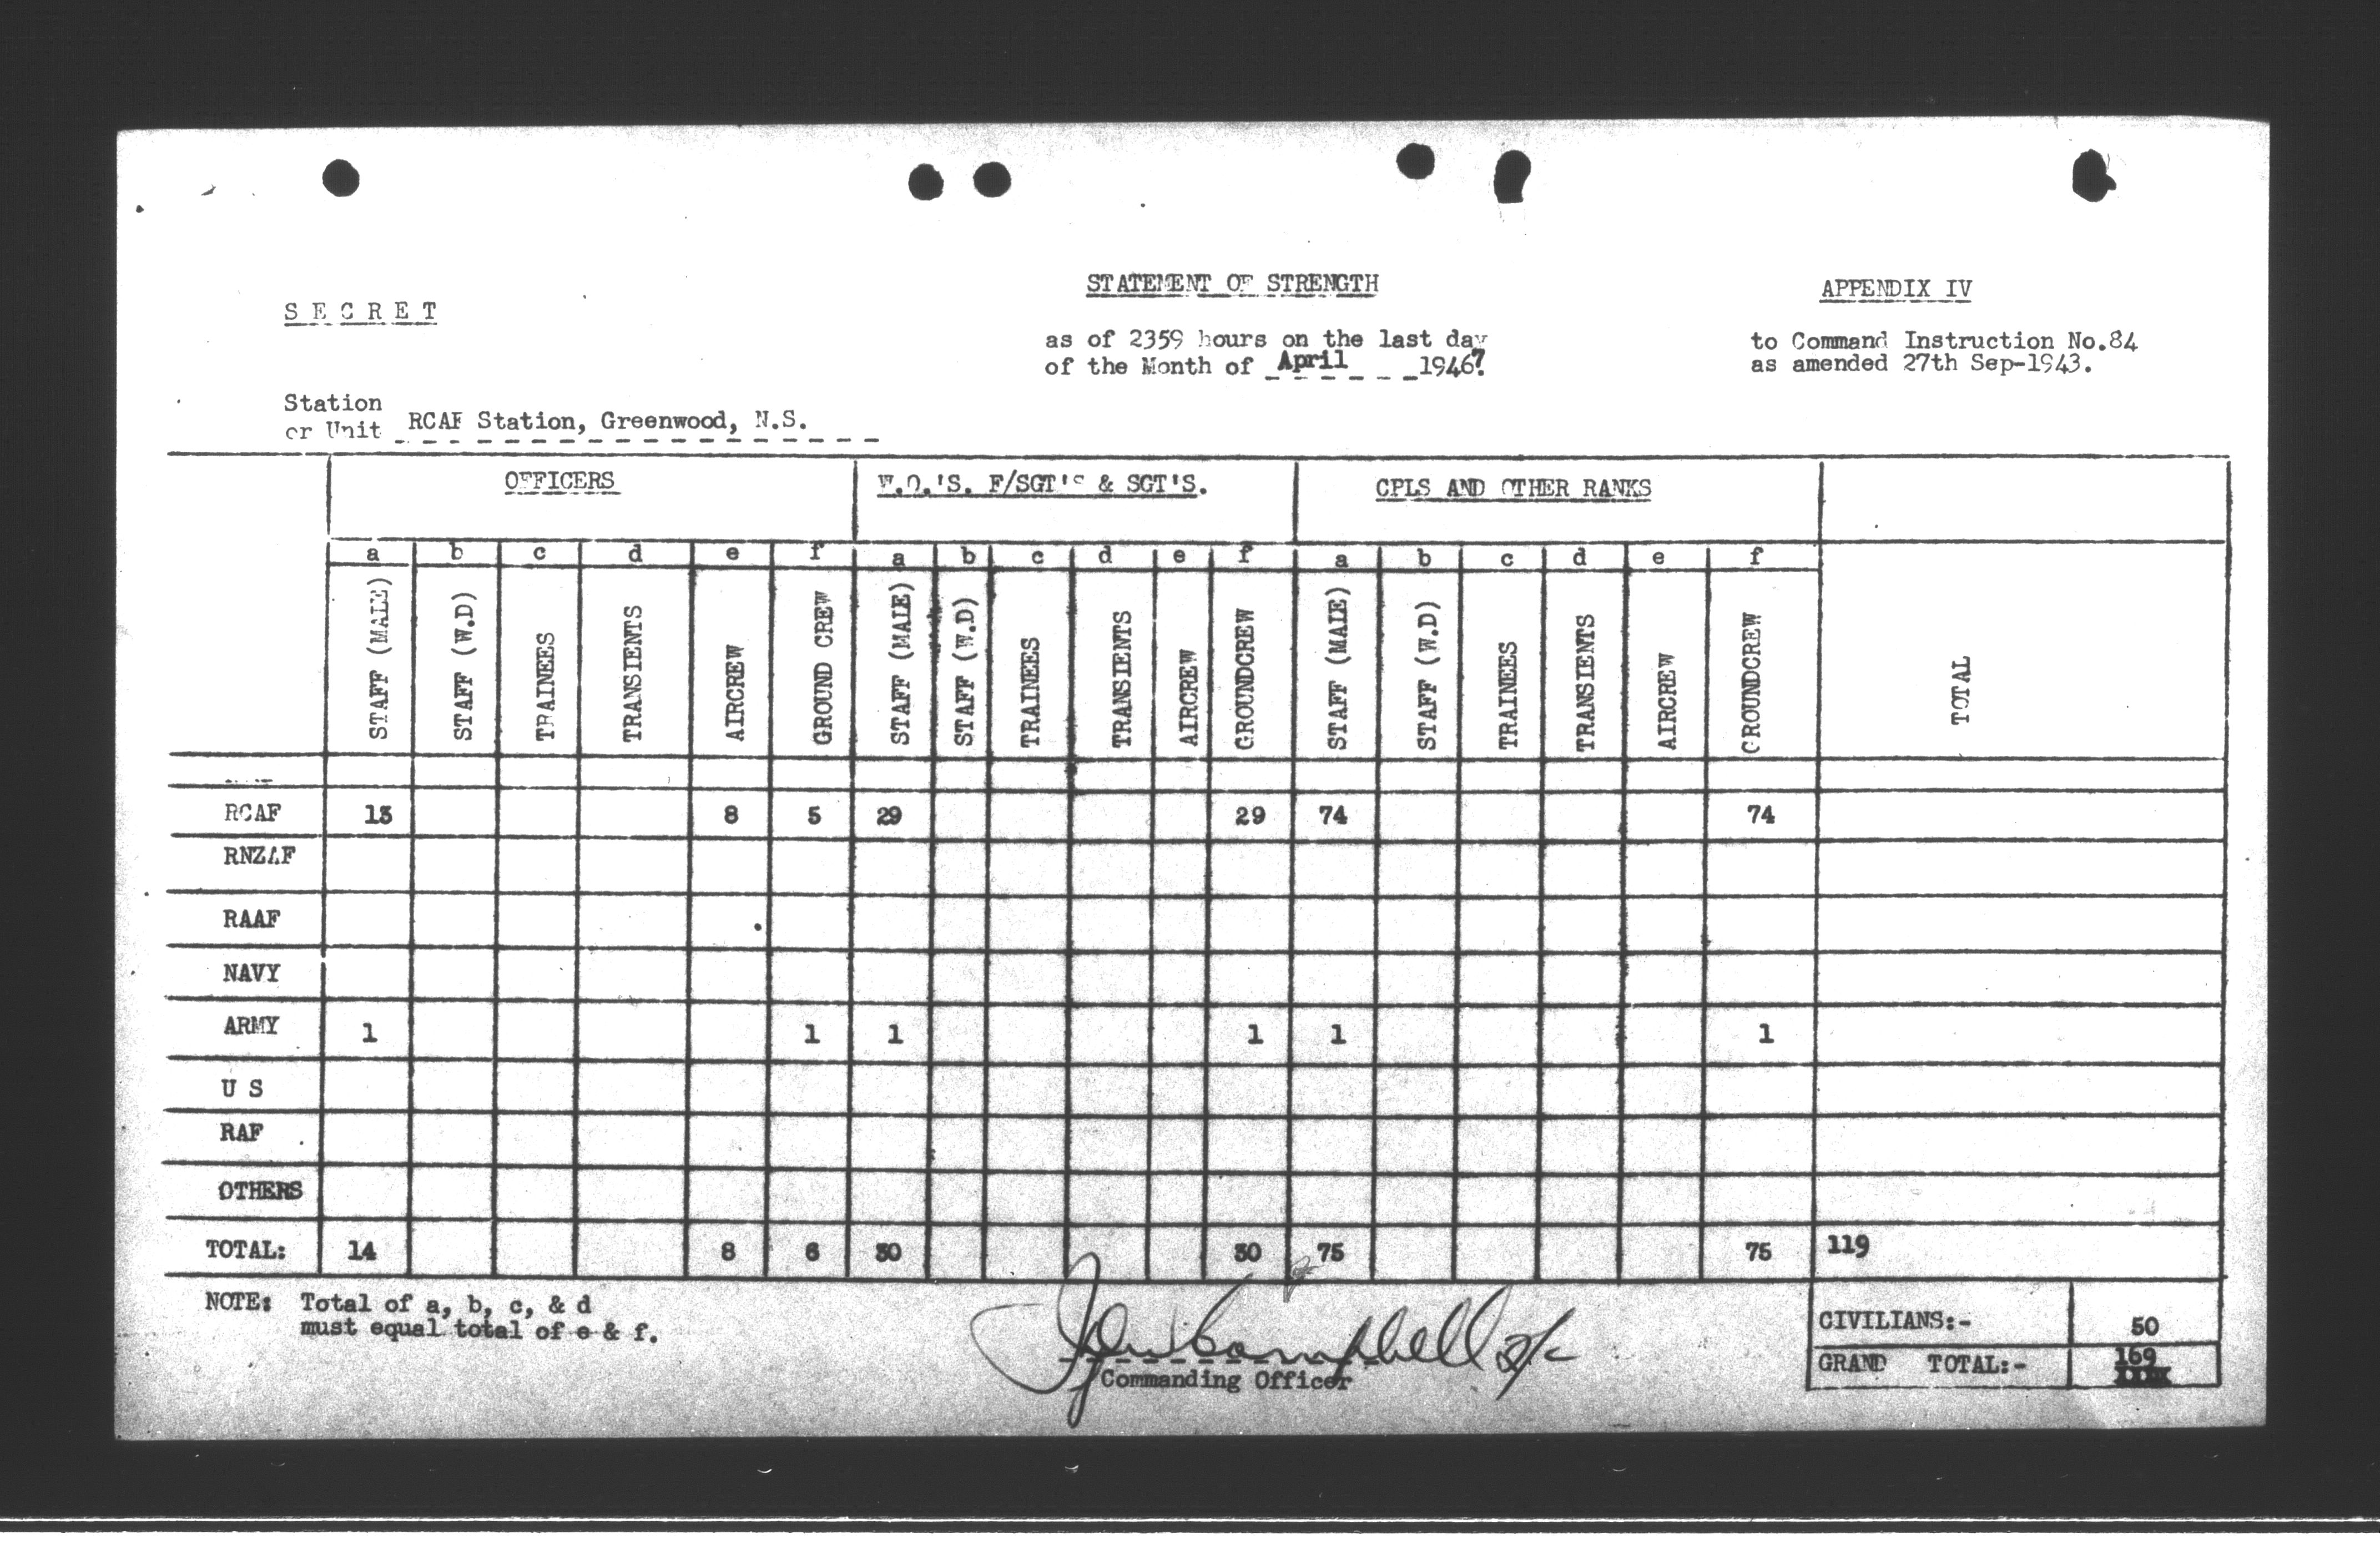 STATEMENT OF STRENGTH
APPENDIX IV
S E C R E T
as of 2359 hours on the last day
of the Month of April 19467.
to Command Instruction No.84
as amended 27th Sep-1943.
Station
or Unit RCAF Station, Greenwood, N.S.
OFFICERS W.O.'S. F/SGT'S & SGT'S. CPLS AND OTHER RANKS
a b c d e f a b c d e f a b c d e f
STAFF (MALE) STAFF (W.D) TRAINEES TRANSIENTS AIRCREW GROUND CREW STAFF (MALE) STAFF (W.D) TRAINEES TRANSIENTS AIRCREW GROUNDCREW STAFF (MALE) STAFF (W.D) TRAINEES TRANSIENTS AIRCREW GROUNDCREW TOTAL
RCAF 13 8 5 29 29 74 74
RNZAF
RAAF
NAVY
ARMY 1 1 1 1 1 1
U S
RAF
OTHERS
TOTAL: 14 8 6 30 30 75 75 119
NOTE: Total of a, b, c, & d
must equal total of e & f.
John Campbell
Commanding Officer
CIVILIANS:- 50
GRAND TOTAL:- 169